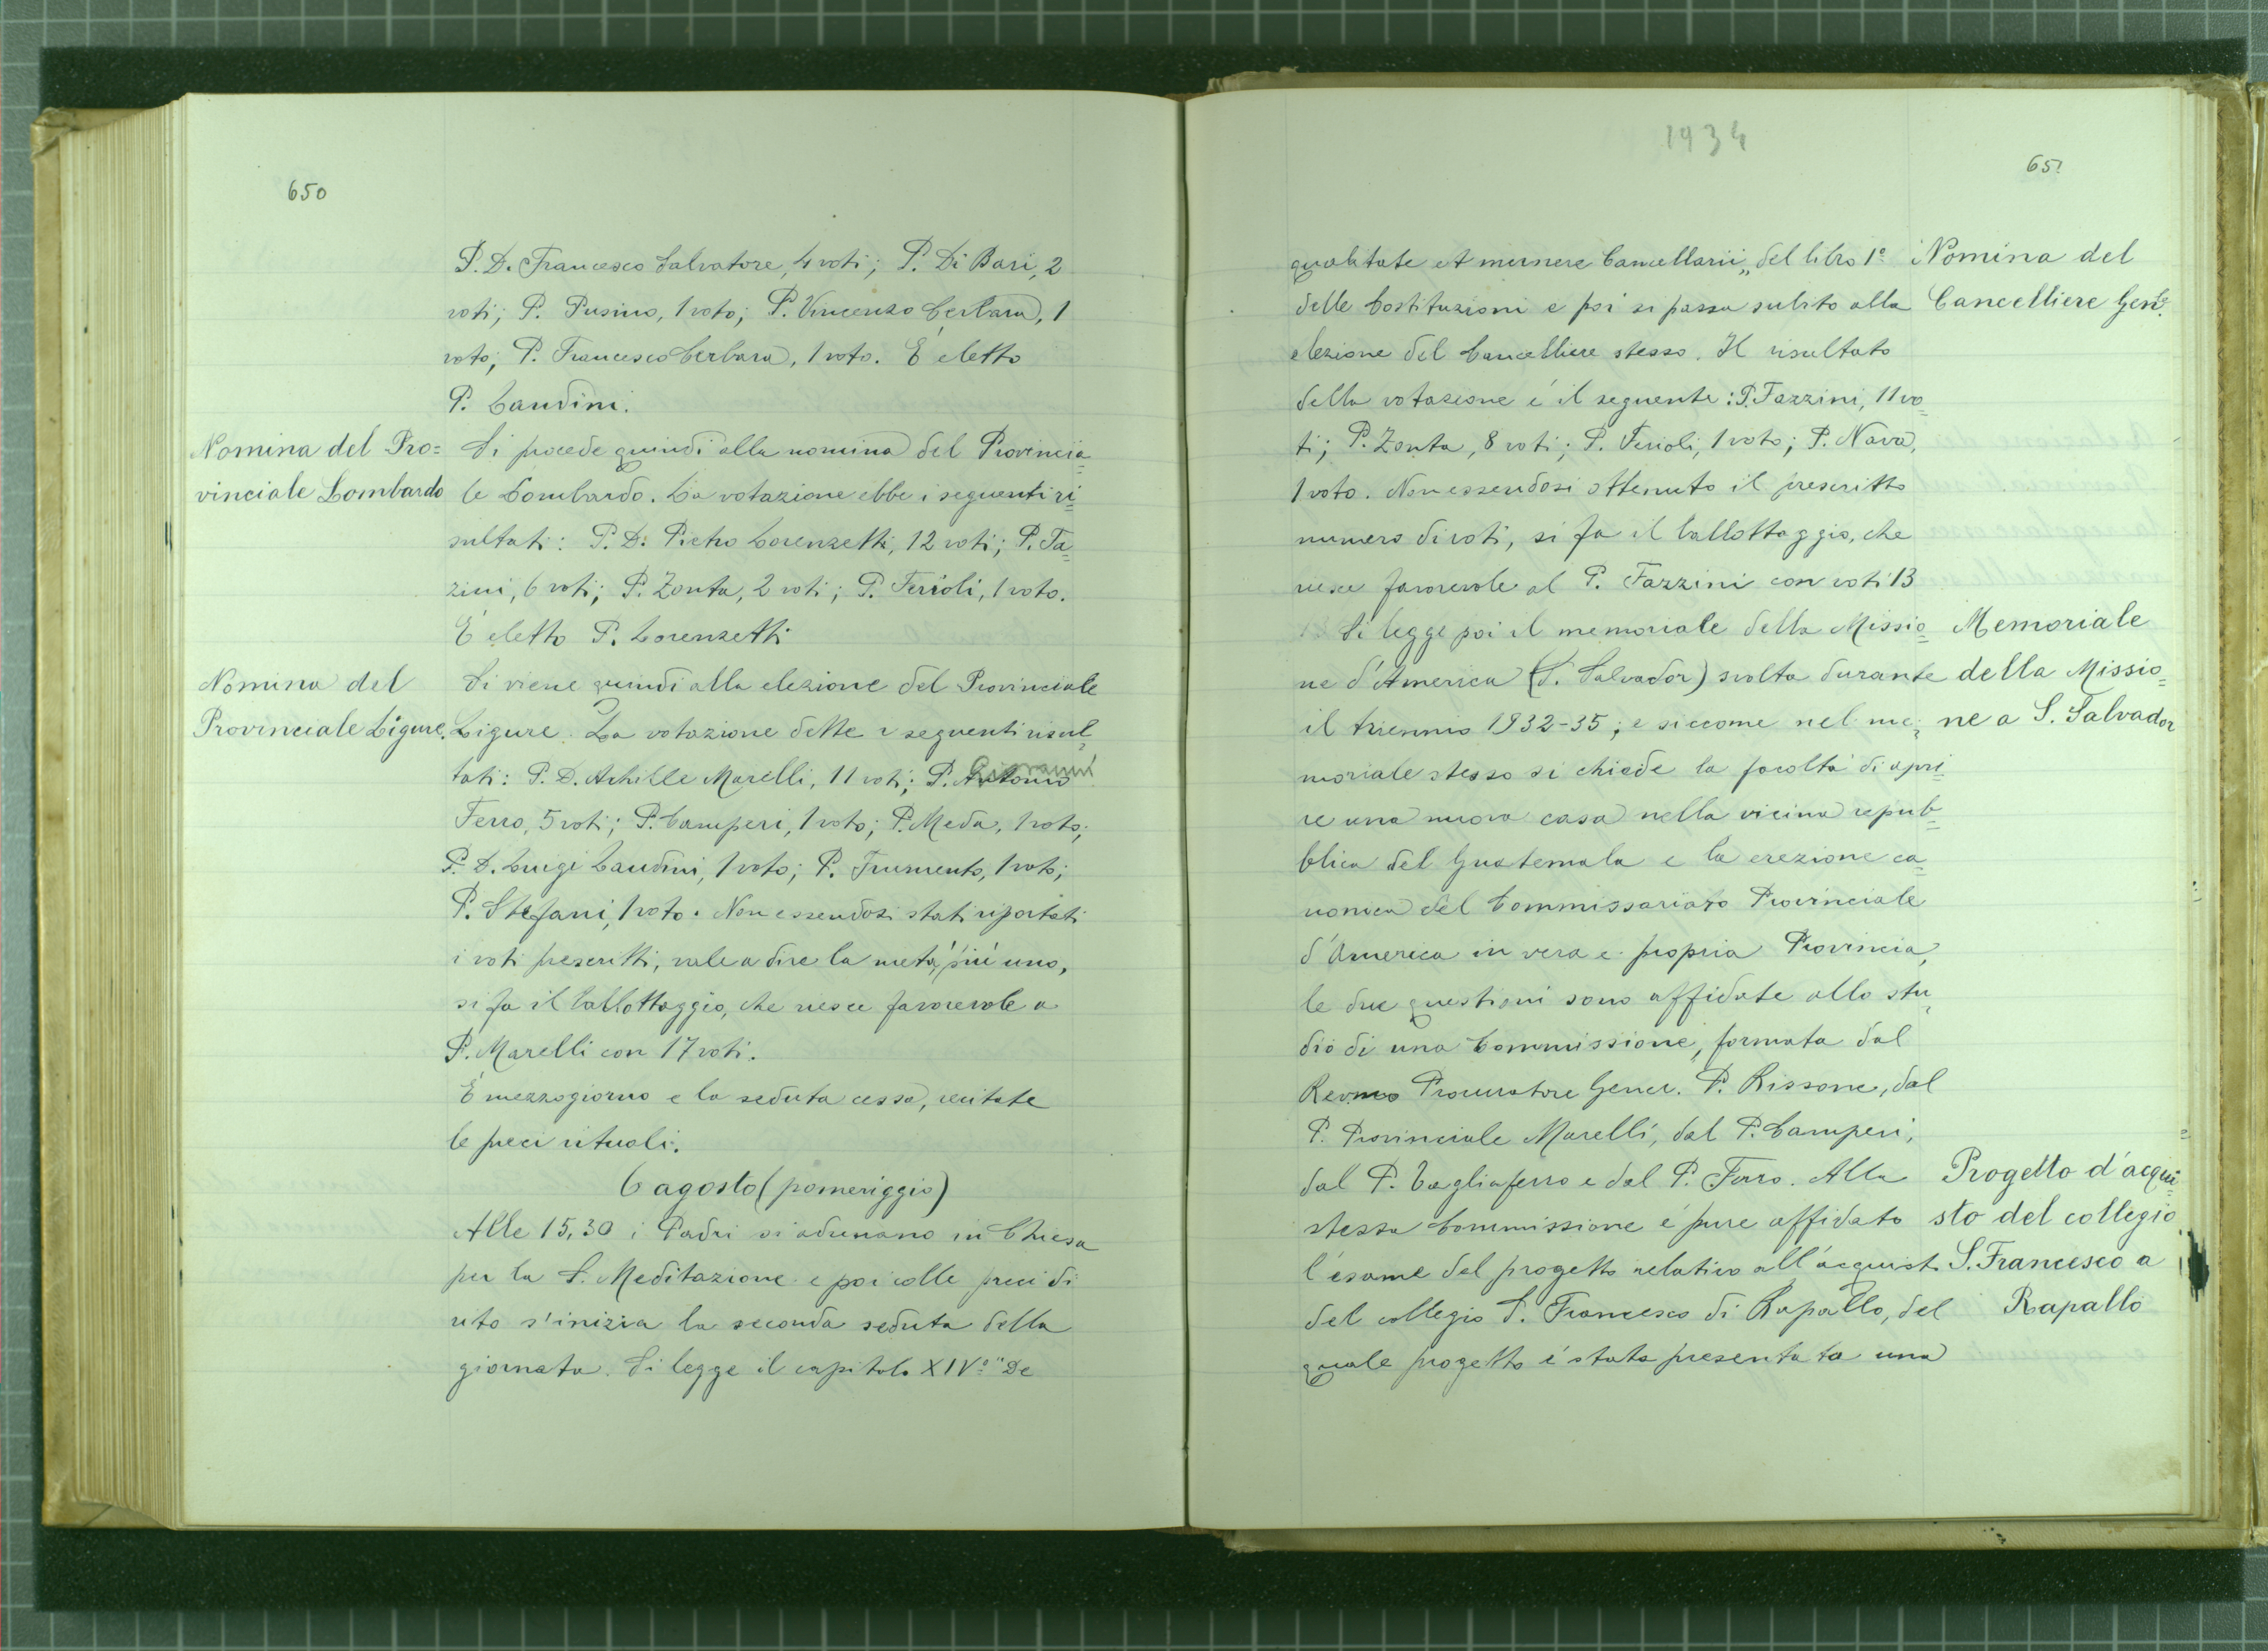 650
P. D. Francesco Salvatore, 4 voti; P. Di Bari, 2
voti; P. Pusino, 1 voto; P. Vincenzo Cerbara, 1
voto; P. Francesco Cerbara, 1 voto. È eletto
P. Landini.
Nomina del Pro=
vinciale Lombardo
Si procede quindi alla nomina del Provincia=
le Lombardo. La votazione ebbe i seguenti ri=
sultati: P. D. Pietro Lorenzetti, 12 voti; P. Fa=
zini, 6 voti; P. Zonta, 2 voti; P. Ferioli, 1 voto.
È eletto P. Lorenzetti
Nomina del
Provinciale Ligure.
Si viene quindi alla elezione del Provinciale
Ligure. La votazione dette i seguenti risul=
tati: P. D. Achille Marelli, 11 voti; P. Antonio Giovanni
Ferro, 5 voti; P. Camperi, 1 voto; P. Meda, 1 voto;
P. D. Luigi Landini, 1 voto; P. Frumento, 1 voto;
P. Stefani, 1 voto. Non essendosi stati riportati
i voti prescritti, vale a dire la metà più uno,
si fa il ballottaggio, che riesce favorevole a
P. Marelli con 17 voti.
È mezzogiorno e la seduta cessa, recitate
le preci rituali.
6 agosto (pomeriggio)
Alle 15,30 i Padri si adunano in Chiesa
per la S. Meditazione e poi colle preci di
rito s'inizia la seconda seduta della
giornata. Si legge il capitolo XIVº "De
1934
651
qualitate et munere Cancellarii„ del libro 1º
delle Costituzioni e poi si passa subito alla
elezione del Cancelliere stesso. Il risultato
della votazione è il seguente: P. Fazzini, 11 vo=
ti; P. Zonta, 8 voti; P. Ferioli, 1 voto; P. Nava,
1 voto. Non essendosi ottenuto il prescritto
numero di voti, si fa il ballottaggio, che
riesce favorevole al P. Fazzini con voti 13
Nomina del
Cancelliere Genle.
Si legge poi il memoriale della Missio=
ne d'America (S. Salvador) svolta durante
il triennio 1932-35; e siccome nel me=
moriale stesso si chiede la facoltà di apri=
re una nuova casa nella vicina repub=
blica del Guatemala e la erezione ca=
nonica del Commissariato Provinciale
d'America in vera e propria Provincia,
le due questioni sono affidate allo stu=
dio di una Commissione, formata dal
Revmo Procuratore Gener. P. Rissone, dal
P. Provinciale Marelli, dal P. Camperi,
dal P. Tagliaferro e dal P. Ferro. Alla
stessa Commissione è pure affidato
l'esame del progetto relativo all'acquist
del collegio S. Francesco di Rapallo, del
quale progetto è stata presentata una
Memoriale
della Missio=
ne a S. Salvador
Progetto d'acqui=
sto del collegio
S. Francesco a
Rapallo